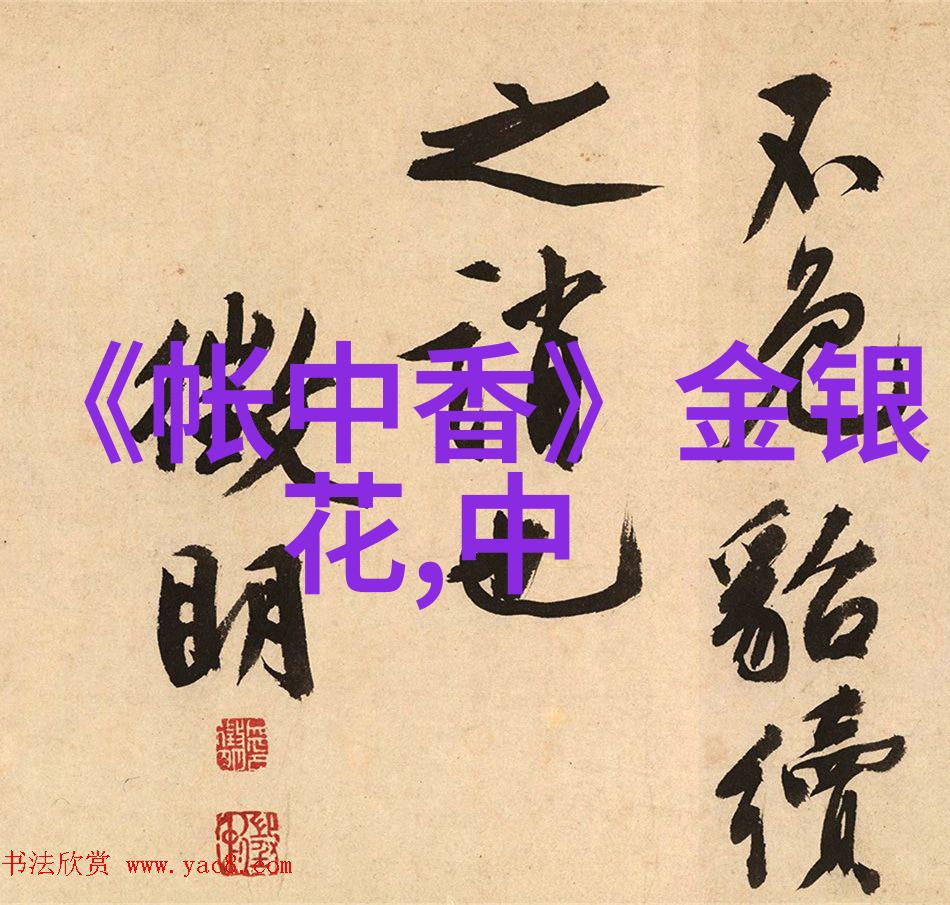 不免貂續
之誚也
徵明
《帐中香》金银
花,中
书法欣赏 www.yac8.com